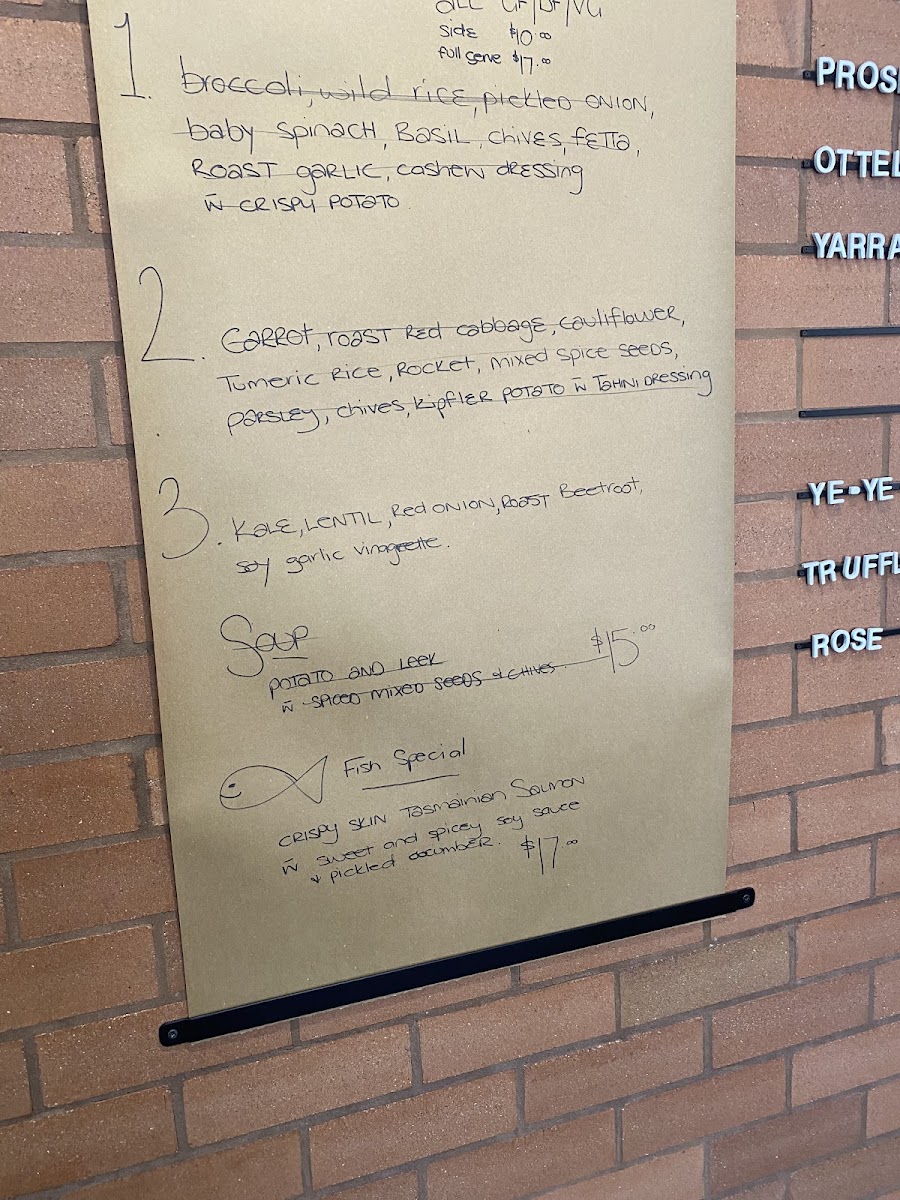 ALL GF/DF/VG
side $10.00
full serve $17.00
1. broccoli, wild rice, pickled onion,
baby spinach, Basil, chives, fetta,
Roast garlic, cashew dressing
w̄ crispy potato
2. Carrot, roast Red cabbage, cauliflower,
Tumeric Rice, Rocket, mixed spice seeds,
parsley, chives, kipfler potato w̄ Tahini dressing
3. Kale, Lentil, Red onion, Roast Beetroot,
soy garlic vinagrette.
Soup
Potato and leek
w̄ spiced mixed seeds + chives. $15.00
Fish Special
crispy skin Tasmainian Salmon
w̄ sweet and spicey soy sauce
+ pickled cucumber. $17.00
PROS
OTTEL
YARRA
YE-YE
TRUFFL
ROSE